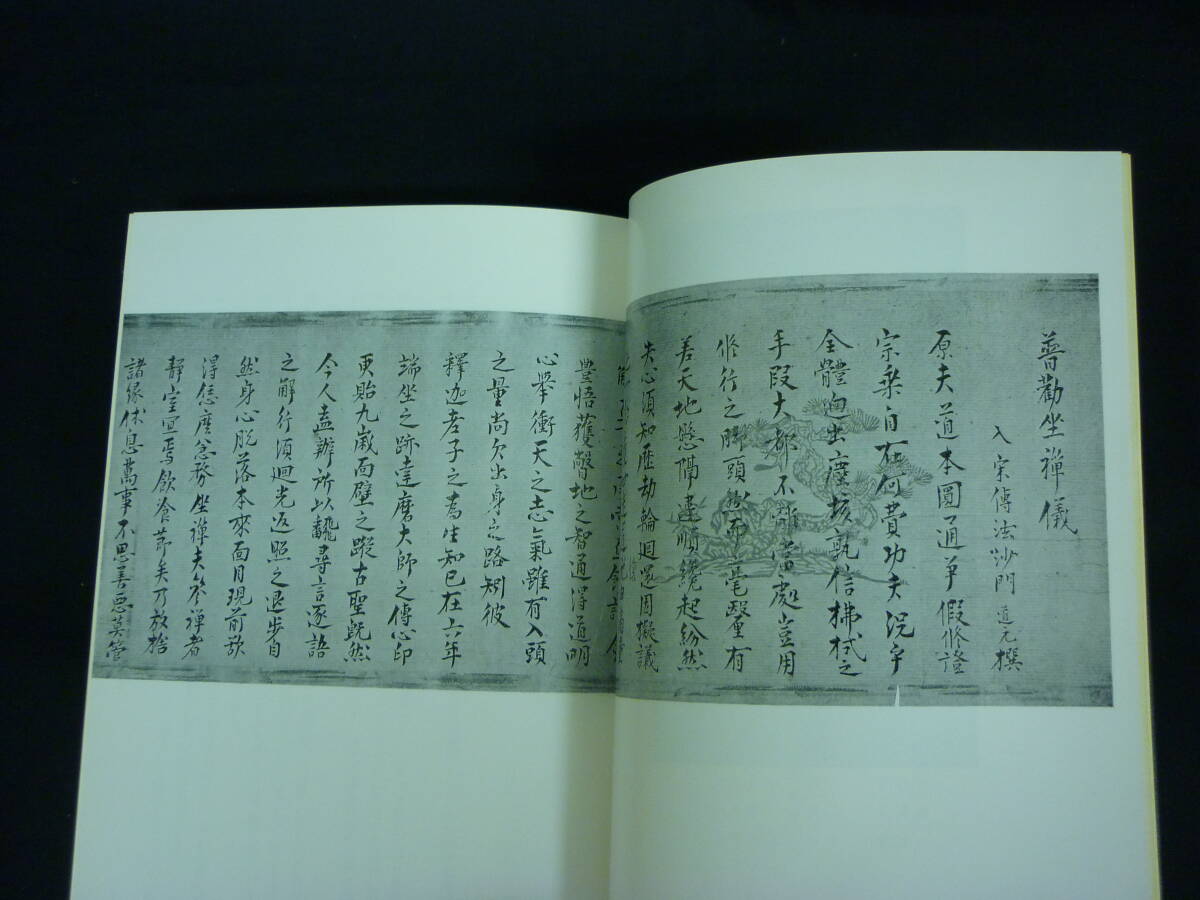 普勸坐禪儀
入宋傳法沙門 道元撰
原夫道本圓通爭假修證
宗乘自在何費功夫況乎
全體迥出塵埃孰信拂拭之
手段大都不離當處豈用
修行之脚頭然而毫釐有
差天地懸隔違順纔起紛然
失心須知歷劫輪迴還因擬議
豐悟獲瞥地之智通得道明
心擧衝天之志氣雖有入頭
之量尚欠出身之路矧彼
釋迦老子之爲生知已在六年
端坐之跡達磨大師之傳心印
更貽九歳面壁之蹤古聖既然
今人盍辦所以飜尋言逐語
之解行須迴光返照之退步自
然身心脱落本來面目現前欲
得恁麼急務坐禪夫參禪者
靜室宜焉飲食節矣乃放捨
諸緣休息萬事不思善惡莫管